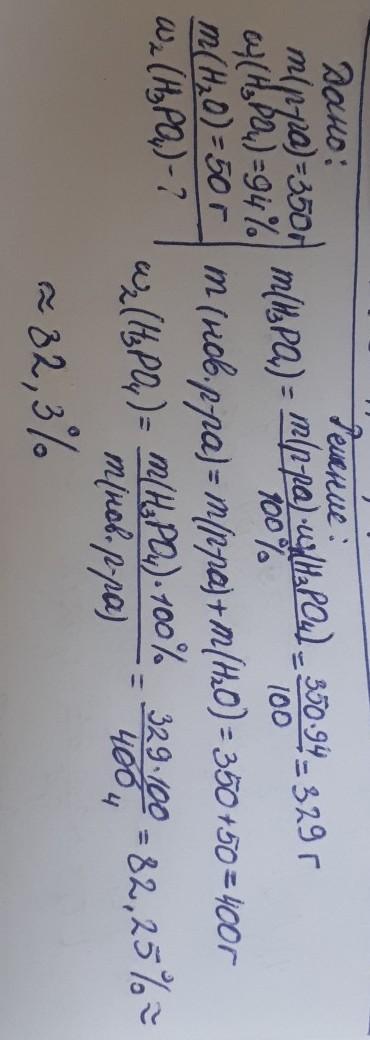 Дано:
m(р-ра)=350г
w₁(H₃PO₄)=94%
m(H₂O)=50г
w₂(H₃PO₄)-?
Решение:
m(H₃PO₄) = m(р-ра)·w₁(H₃PO₄) / 100% = 350·94 / 100 = 329 г
m(нов.р-ра) = m(р-ра)+m(H₂O) = 350+50=400г
w₂(H₃PO₄) = m(H₃PO₄)·100% / m(нов.р-ра) = 329·100 / 400 4 = 82,25% ≈
≈ 82,3%